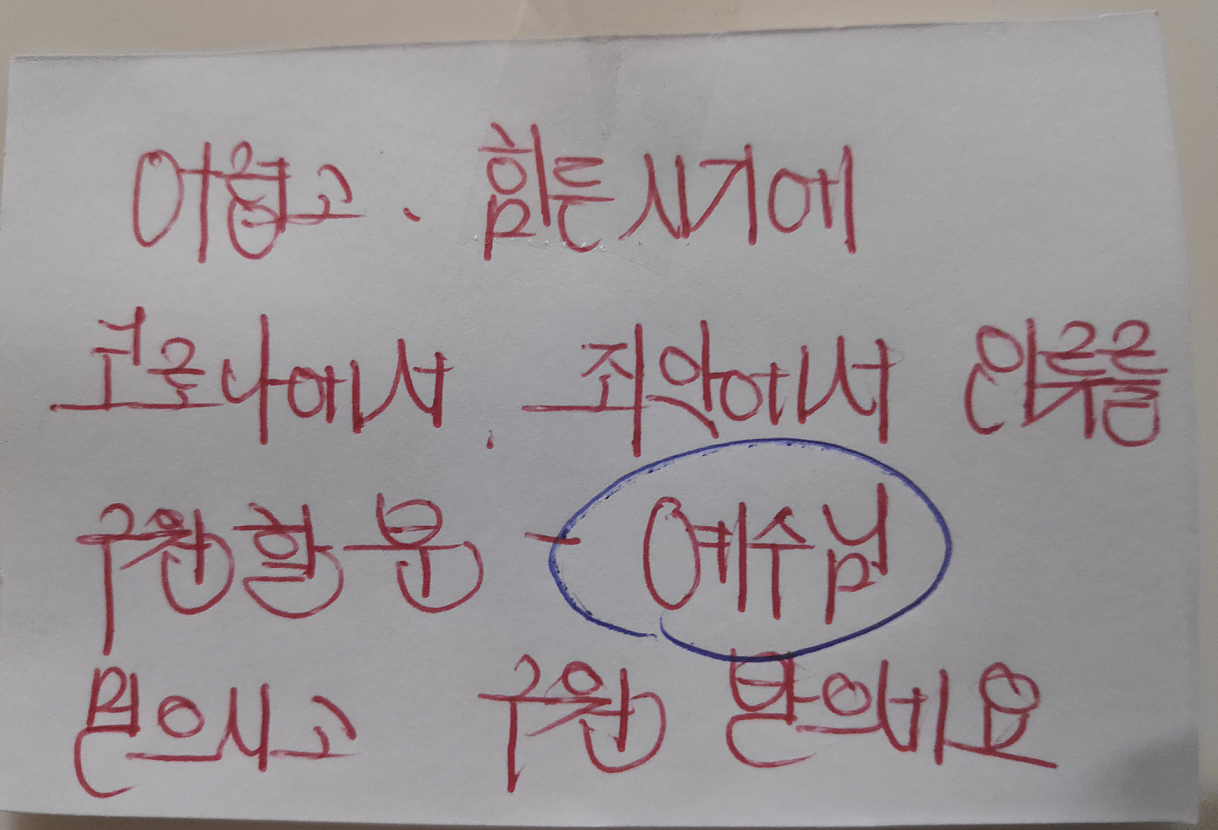 어렵고. 힘든 시기에
코로나에서. 죄악에서 인류를
구원할 분 - 예수님
믿으시고 구원 받으세요